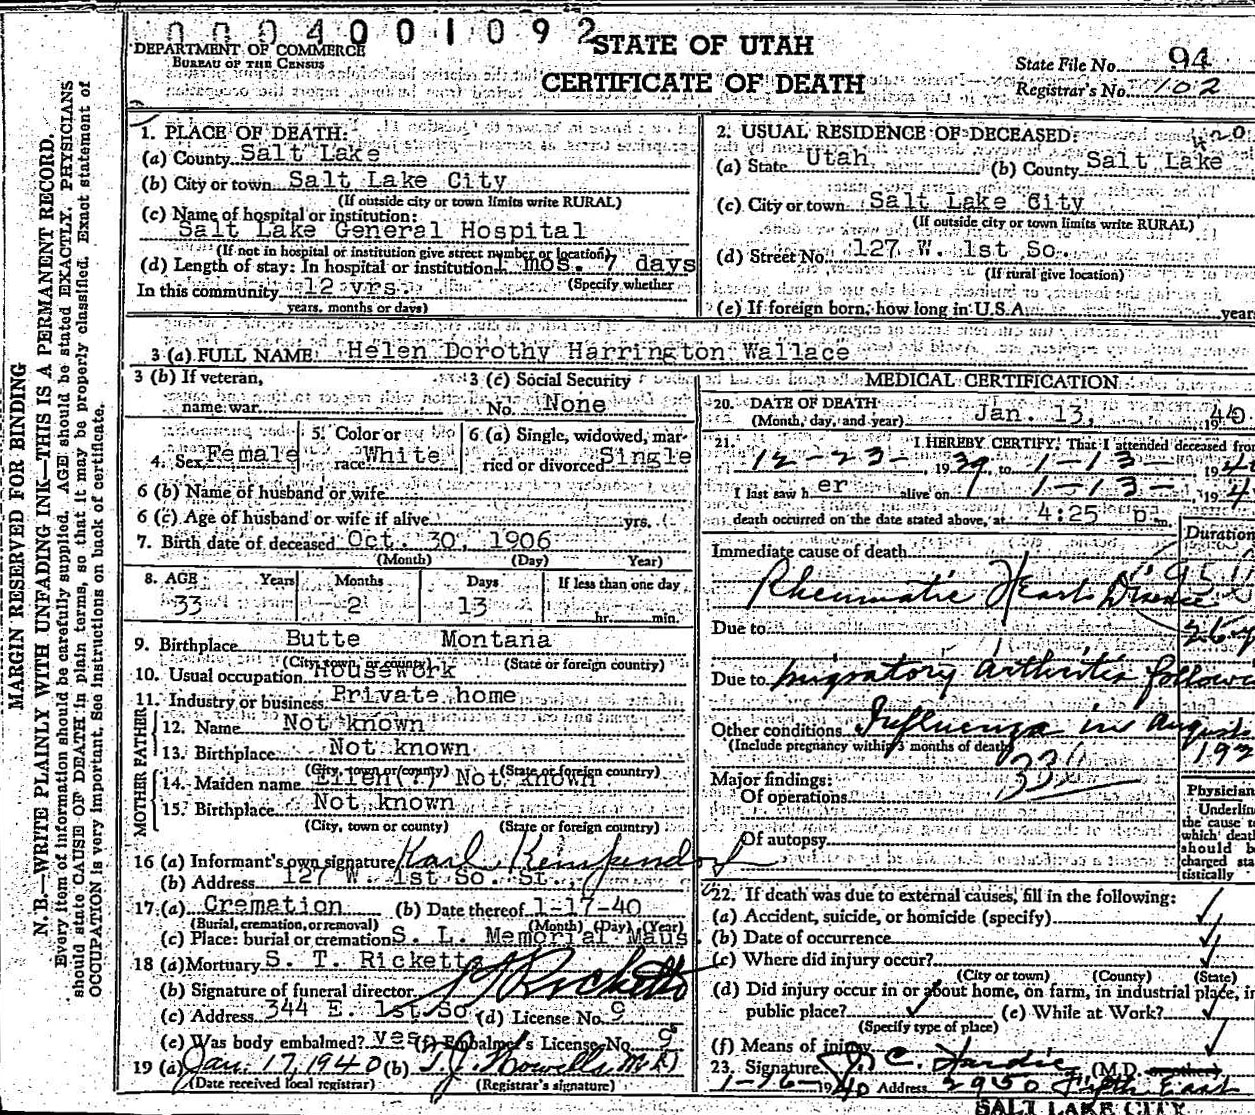 0004001092
DEPARTMENT OF COMMERCE
BUREAU OF THE CENSUS
STATE OF UTAH
CERTIFICATE OF DEATH
State File No. 94
Registrar's No. 102
MARGIN RESERVED FOR BINDING
N. B.—WRITE PLAINLY WITH UNFADING INK—THIS IS A PERMANENT RECORD.
Every item of information should be carefully supplied. AGE should be stated EXACTLY. PHYSICIANS
should state CAUSE OF DEATH in plain terms, so that it may be properly classified. Exact statement of
OCCUPATION is very important. See instructions on back of certificate.
1. PLACE OF DEATH:
(a) County Salt Lake
(b) City or town Salt Lake City
(If outside city or town limits write RURAL)
(c) Name of hospital or institution:
Salt Lake General Hospital
(If not in hospital or institution give street number or location)
(d) Length of stay: In hospital or institution 1 mos. 7 days
(Specify whether
In this community 12 yrs.
years, months or days)
2. USUAL RESIDENCE OF DECEASED:
(a) State Utah (b) County Salt Lake
(c) City or town Salt Lake City
(If outside city or town limits write RURAL)
(d) Street No. 127 W. 1st So.
(If rural give location)
(e) If foreign born, how long in U.S.A. years
3 (a) FULL NAME: Helen Dorothy Harrington Wallace
3 (b) If veteran,
name war
3 (c) Social Security
No. None
4. Sex Female
5. Color or
race White
6 (a) Single, widowed, mar-
ried or divorced Single
6 (b) Name of husband or wife
6 (c) Age of husband or wife if alive yrs.
7. Birth date of deceased Oct. 30, 1906
(Month) (Day) Year)
8. AGE Years Months Days If less than one day
33 2 13 hr. min.
9. Birthplace Butte Montana
(City, town, or county) (State or foreign country)
10. Usual occupation Housework
11. Industry or business Private home
FATHER
12. Name Not known
13. Birthplace Not known
(City, town or county) (State or foreign country)
MOTHER
14. Maiden name Ellen(?) Not known
15. Birthplace Not known
(City, town or county) (State or foreign country)
16 (a) Informant's own signature Karl Kempendorf
(b) Address 127 W. 1st So. St.
17. (a) Cremation (b) Date thereof 1-17-40
(Burial, cremation, or removal) (Month) (Day) (Year)
(c) Place: burial or cremation S. L. Memorial Maus.
18 (a) Mortuary S. T. Ricketts
(b) Signature of funeral director Ricketts
(c) Address 344 E. 1st So (d) License No. 9
(e) Was body embalmed? yes (f) Embalmer's License No. 9
19 (a) Jan. 17, 1940 (b) T. J. Howells M D
(Date received local registrar) (Registrar's signature)
MEDICAL CERTIFICATION
20. DATE OF DEATH
(Month, day, and year) Jan. 13, 1940
21. I HEREBY CERTIFY: That I attended deceased from
12-23- 1939, to 1-13- 194
I last saw her alive on 1-13- 194
death occurred on the date stated above, at 4:25 p m.
Duration
Immediate cause of death
Rheumatic Heart Disease
Due to
Due to migratory arthritis follow
Other conditions Influenza in August
(Include pregnancy within 3 months of death)
Major findings:
Of operations
Of autopsy
Physician
Underlin
the cause to
which deat
should be
charged sta
tistically
22. If death was due to external causes, fill in the following:
(a) Accident, suicide, or homicide (specify)
(b) Date of occurrence
(c) Where did injury occur?
(City or town) (County) (State)
(d) Did injury occur in or about home, on farm, in industrial place, in
public place? (e) While at Work?
(Specify type of place)
(f) Means of injury
23. Signature J. C. Hardie (M.D. another)
1-16-1940 Address 2950 Fifth East
SALT LAKE CITY